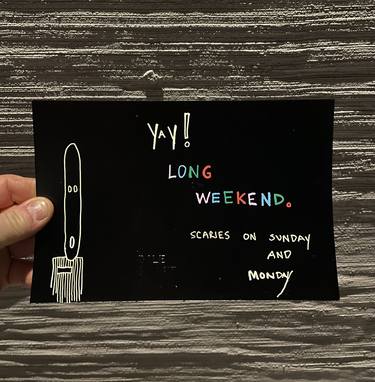 YAY!
LONG
WEEKEND.
SCARIES ON SUNDAY
AND
MONDAY